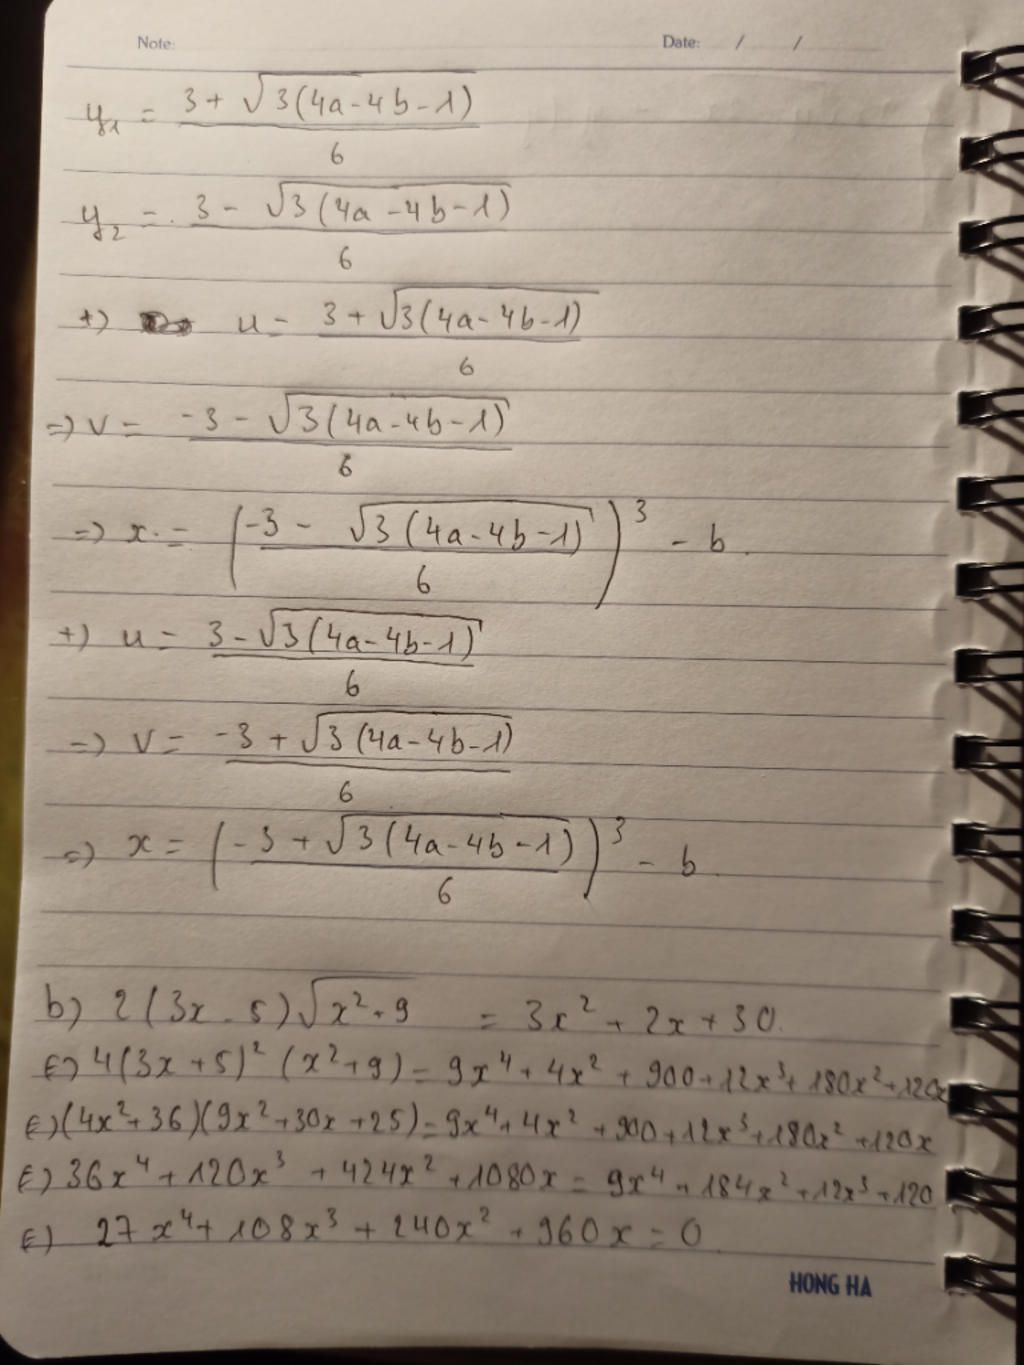 Note: Date: / /
y₁ = (3 + √(3(4a-4b-1)))/6
y₂ = (3 - √(3(4a-4b-1)))/6
+) u = (3 + √(3(4a-4b-1)))/6
=) v = (-3 - √(3(4a-4b-1)))/6
=) x = ((-3 - √(3(4a-4b-1)))/6)³ - b.
+) u = (3 - √(3(4a-4b-1)))/6
=) v = (-3 + √(3(4a-4b-1)))/6
=) x = ((-3 + √(3(4a-4b-1)))/6)³ - b.
b) 2(3x - 5)√(x²+9) = 3x² + 2x + 30.
(=) 4(3x+5)² (x²+9) = 9x⁴ + 4x² + 900 + 12x³ + 180x² + 120x
(=) (4x²+36)(9x²+30x+25) = 9x⁴ + 4x² + 900 + 12x³ + 180x² + 120x
(=) 36x⁴ + 120x³ + 424x² + 1080x = 9x⁴ + 184x² + 12x³ + 120
(=) 27x⁴ + 108x³ + 240x² + 960x = 0.
HONG HA